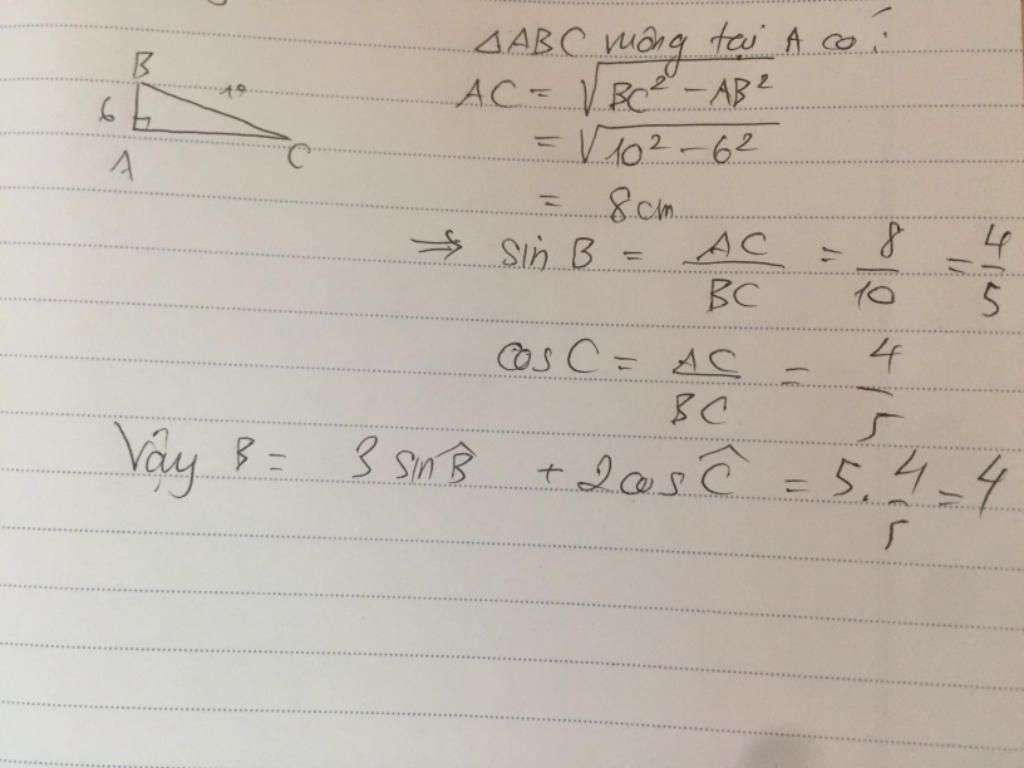 ΔABC vuông tại A có:
B
6
10
A
C
AC = √(BC² - AB²)
= √(10² - 6²)
= 8cm
=> sin B = AC/BC = 8/10 = 4/5
cos C = AC/BC = 4/5
Vậy B = 3 sin B̂ + 2 cos Ĉ = 5. 4/5 = 4